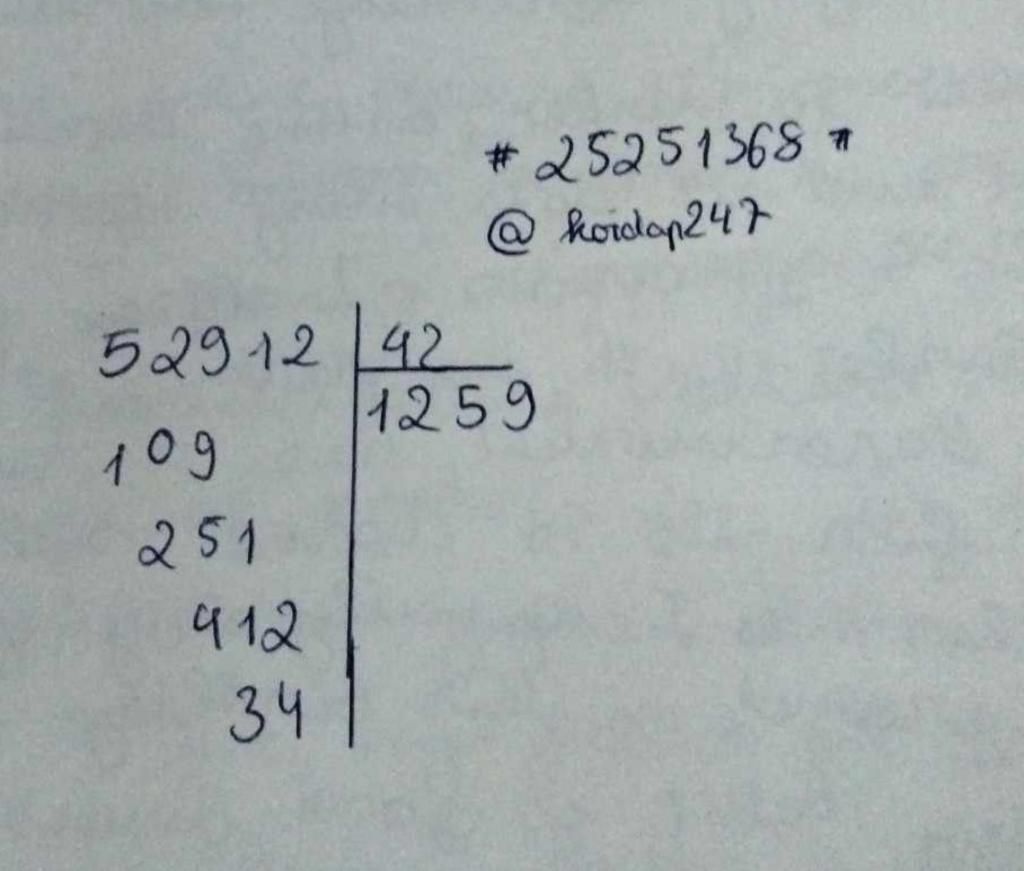 # 25251368 #
@ hoidap247
52912 | 42
1259
109
251
412
34